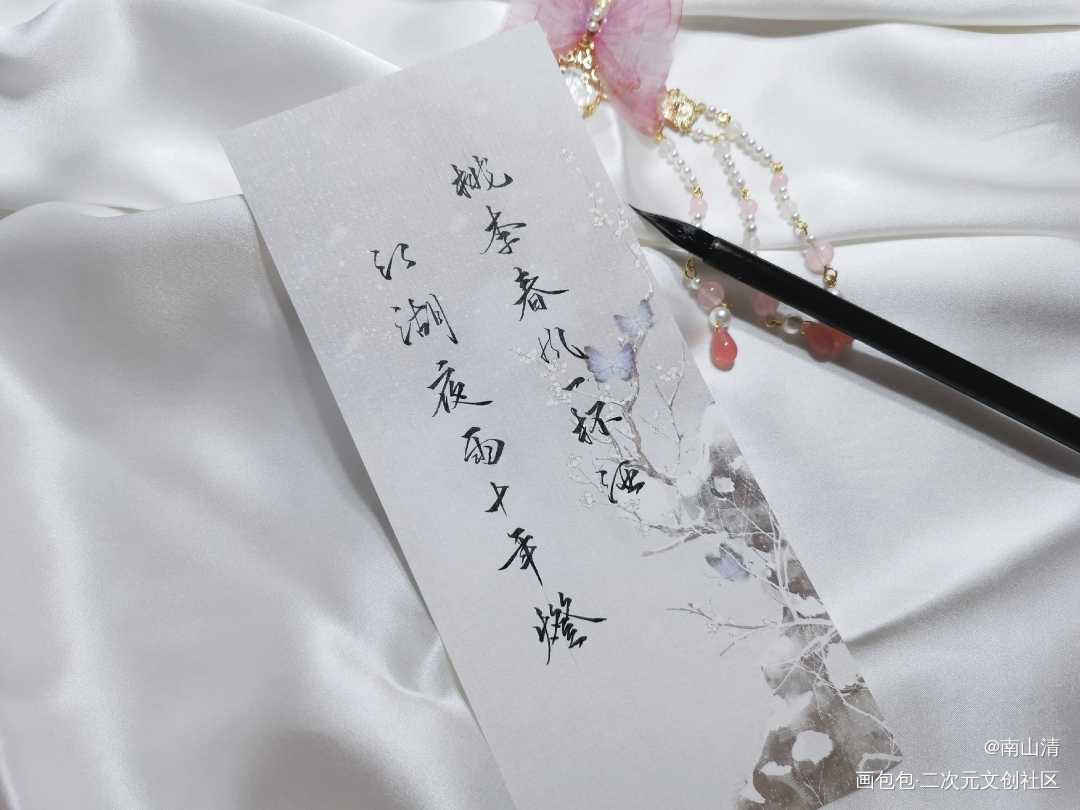 桃李春风一杯酒
江湖夜雨十年燈
@南山清
画包包·二次元文创社区